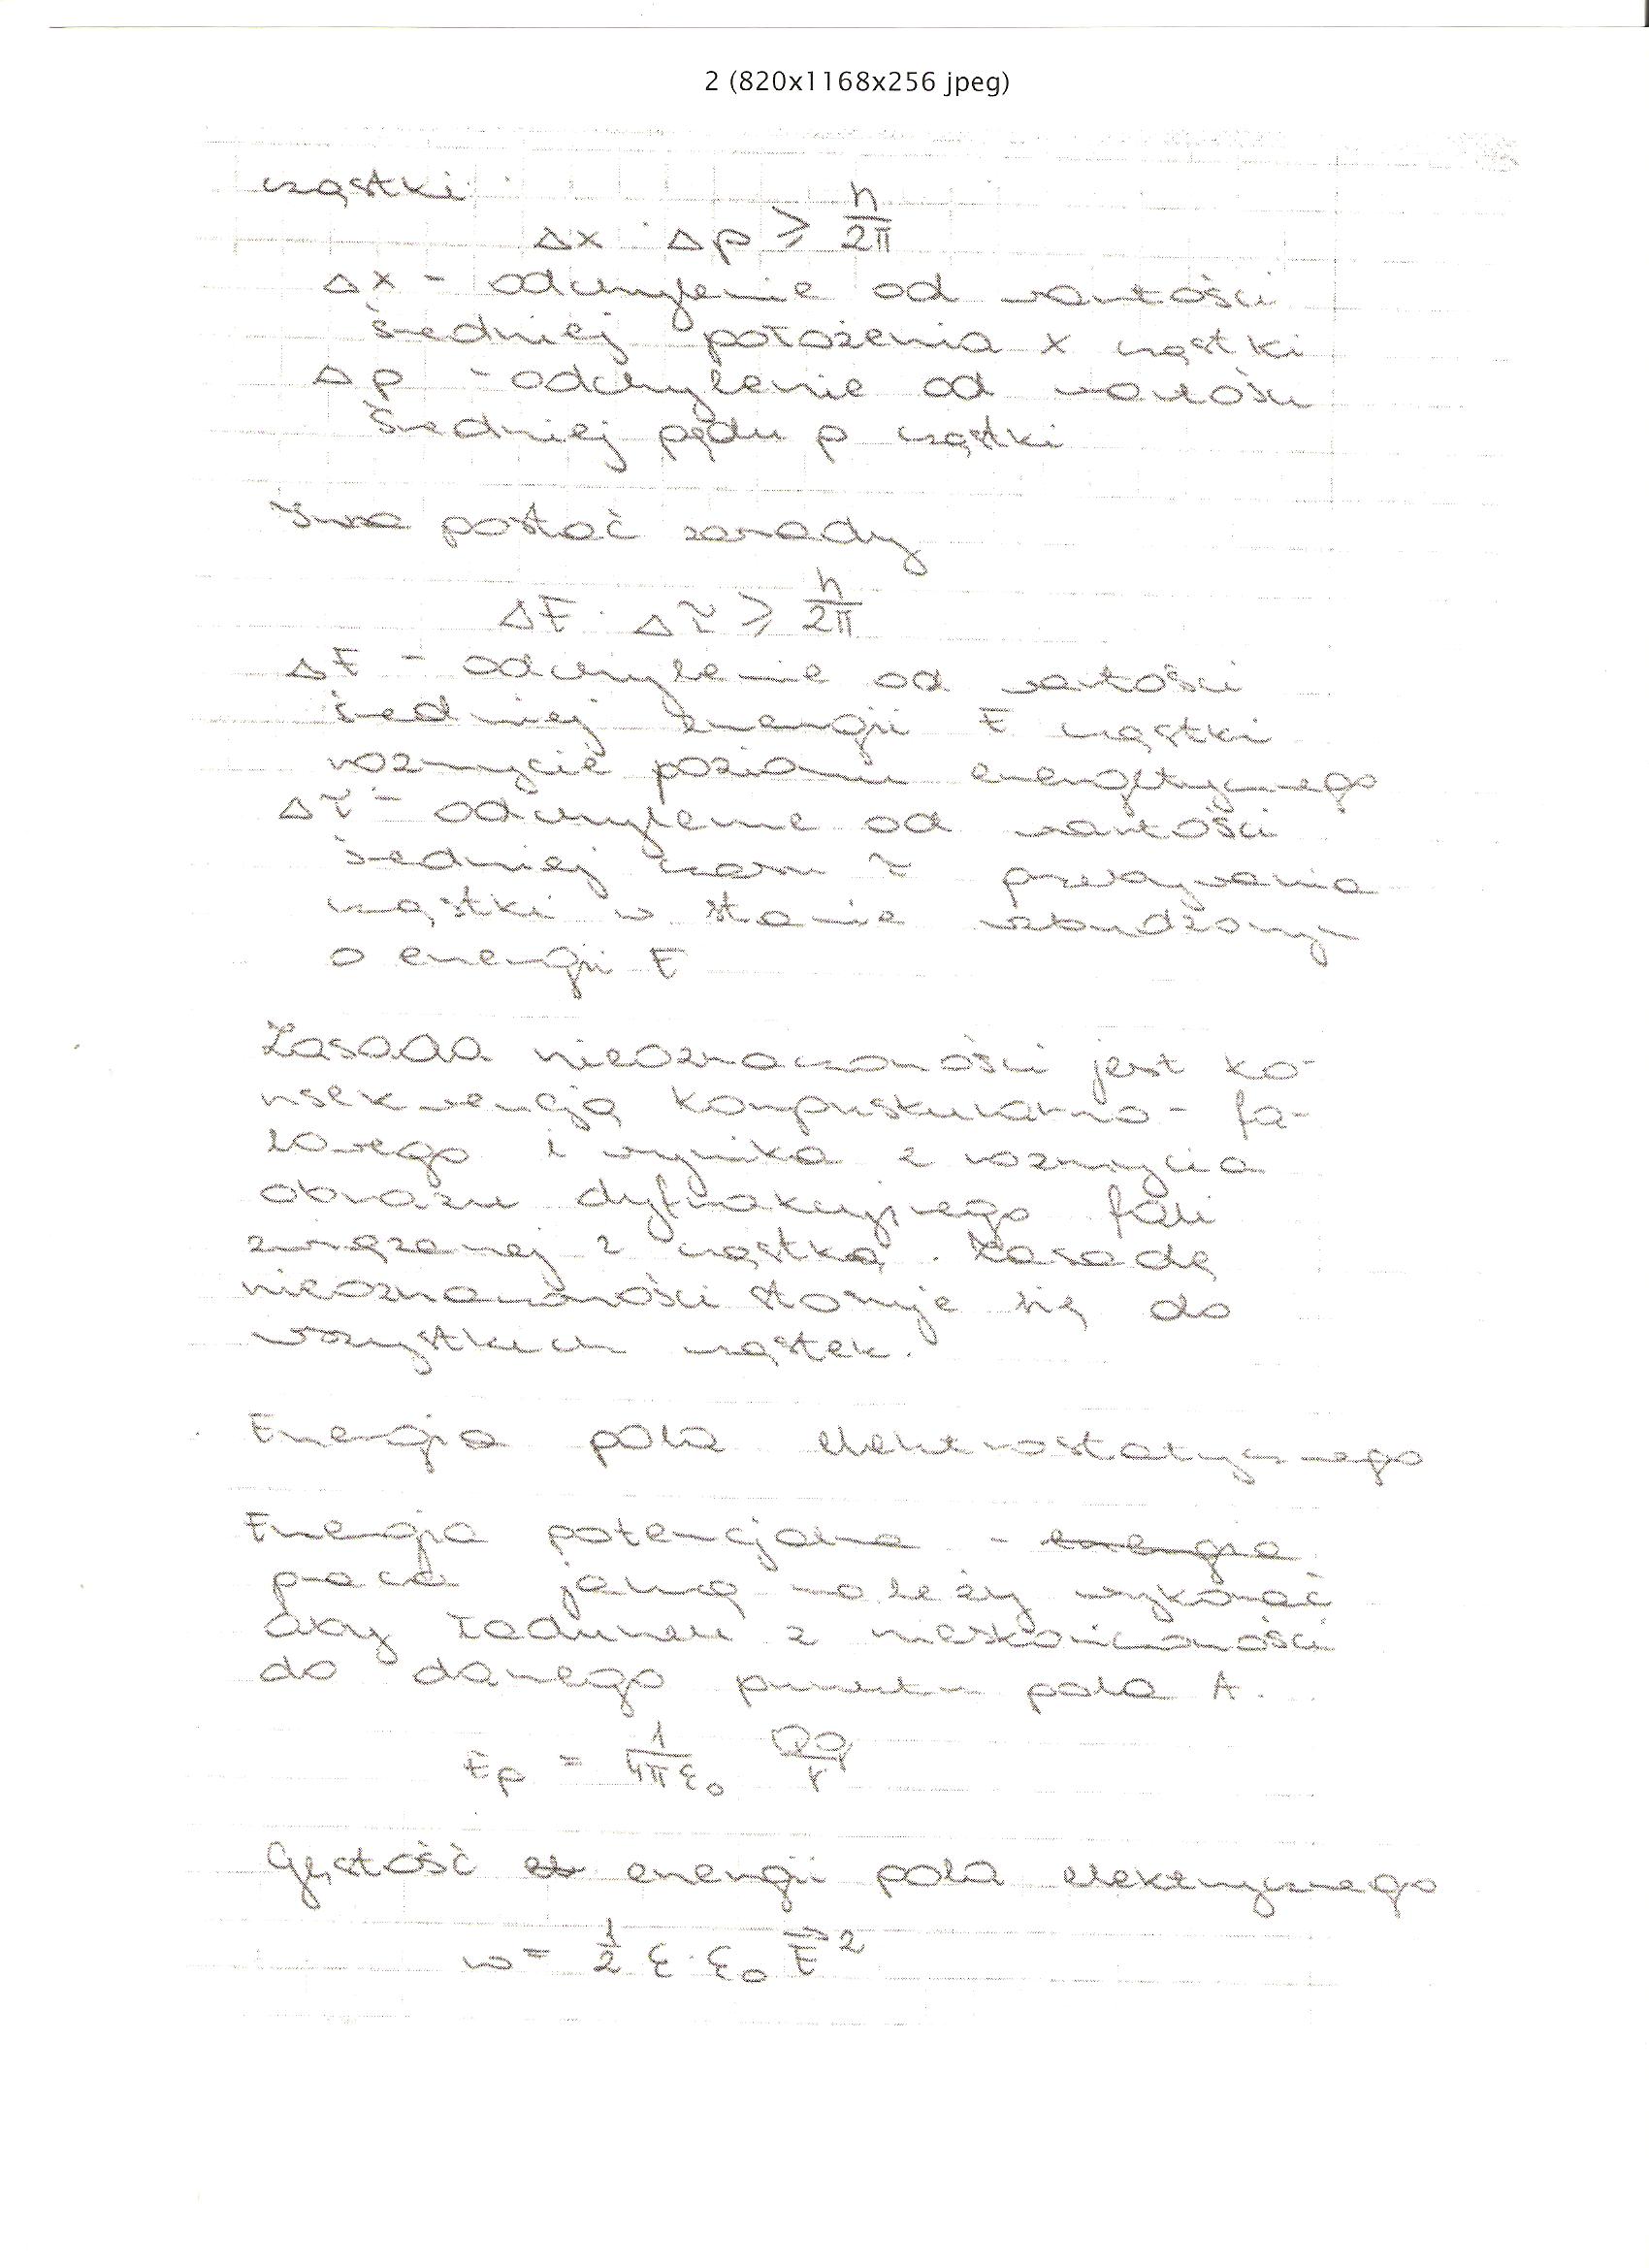 2 (820x1168x256 jpeg)
cząstki
Δx · Δp ≥ h/2π
Δx - odchylenie od wartości
średniej położenia x cząstki
Δp - odchylenie od wartości
średniej pędu p cząstki
Inna postać zasady
ΔE · Δτ ≥ h/2π
ΔE - odchylenie od wartości
średniej energii E cząstki
rozmycie poziomu energetycznego
Δτ - odchylenie od wartości
średniej czasu τ przebywania
cząstki w stanie wzbudzonym
o energii E
Zasada nieoznaczoności jest ko-
nsekwencją korpuskularno - fa-
lowego i wynika z rozmycia
obrazu dyfrakcyjnego fali
związanej z cząstką. Zasadę
nieoznaczoności stosuje się do
wszystkich cząstek.
Energia pola elektrostatycznego
Energia potencjalna - energia
praca jaką należy wykonać
aby ładunek z nieskończoności
do danego punktu pola A.
Ep = 1/4πε₀ Qq/r
Gęstość energii pola elektrycznego
w = 1/2 ε · ε₀ E⃗²